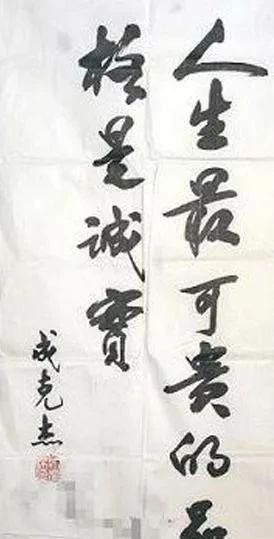 人生最可贵的品
格是诚實
成克杰